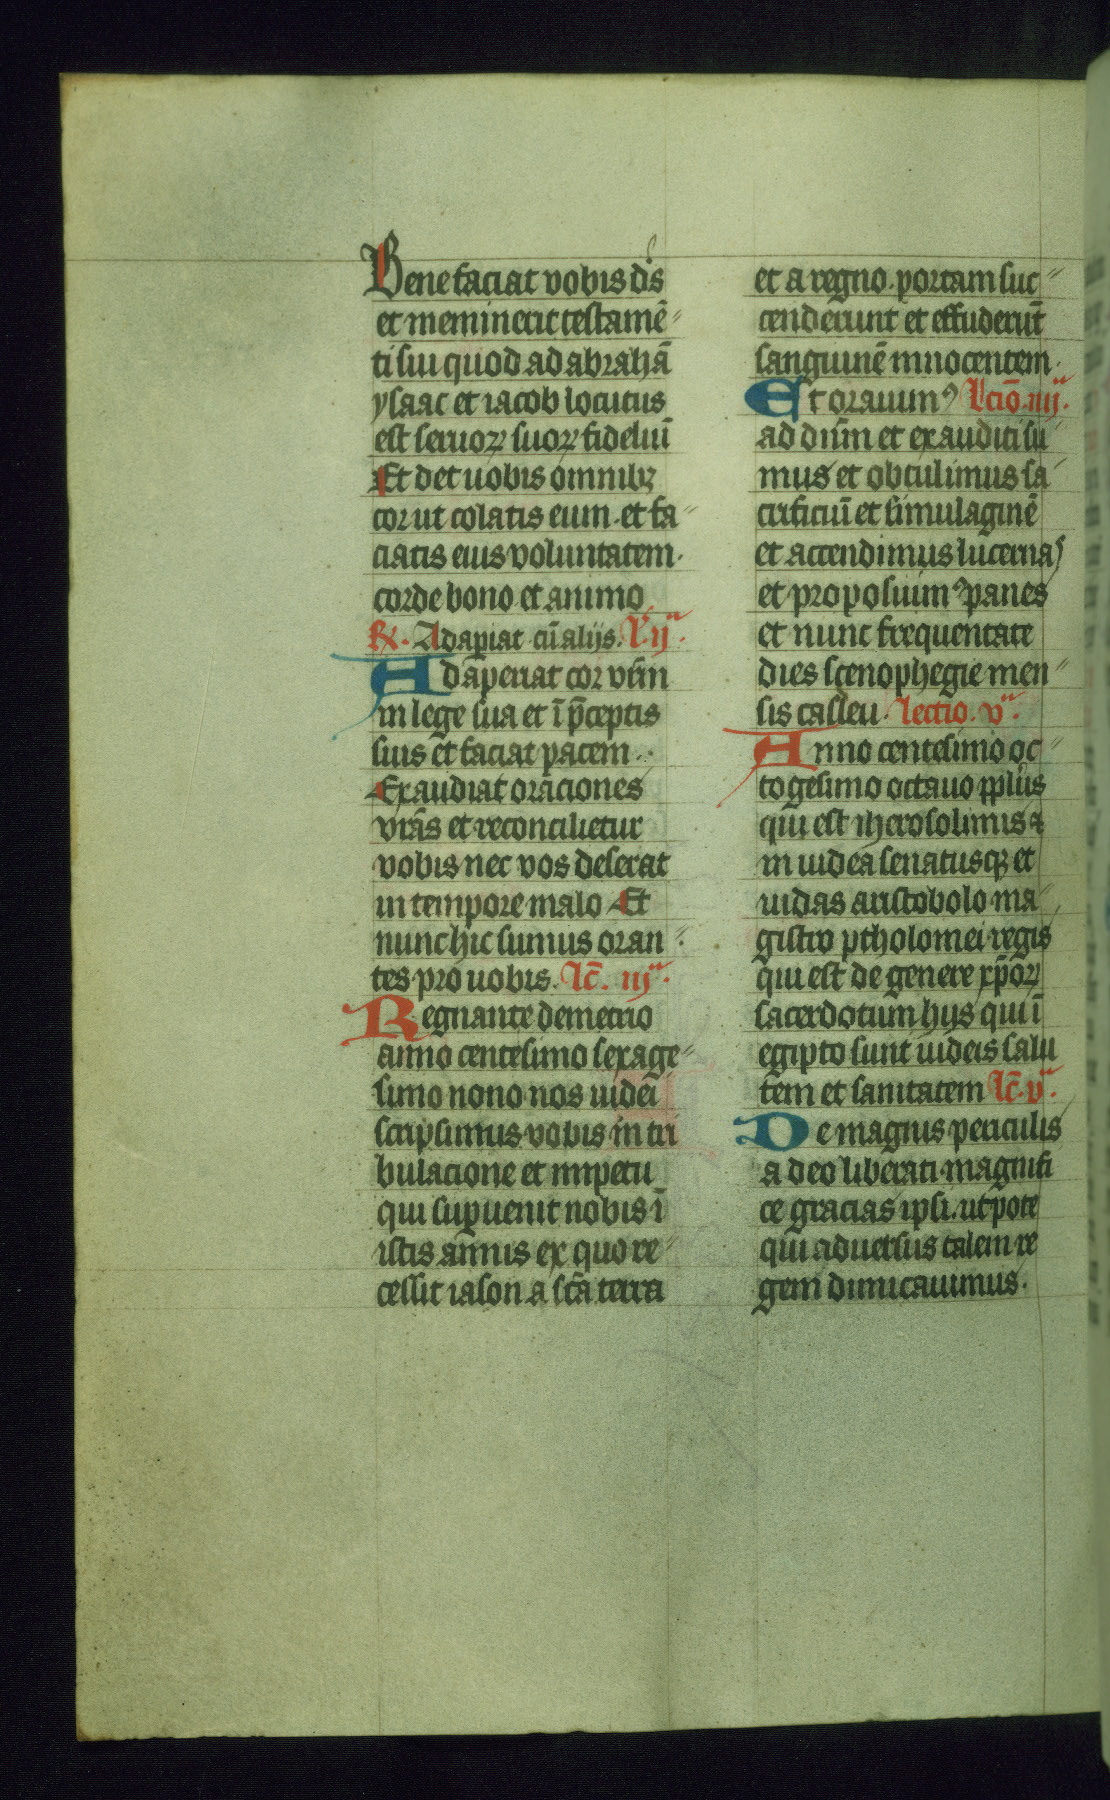 Benefaciat vobis ds̄
et meminerit testamē
ti sui quod ad abrahā
ysaac et iacob locutus
est seruoꝝ suoꝝ fideliū
Et det uobis omnibꝫ
cor ut colatis eum. et fa
ciatis eius voluntatem.
corde bono et animo
R̄. Adap̱iat cū alijs. L. ij.
Adaperiat cor vr̄m
in lege sua et ī p̄ceptis
suis et faciat pacem.
Exaudiat oraciones
vrās et reconcilietur
vobis nec vos deserat
in tempore malo Et
nunc hic sumus oran
tes pro uobis. lc̄. iij.
Regnante demetrio
anno centesimo sexage
simo nono nos iudei
scripsimus vobis in tri
bulacione et impetu
qui suꝑuenit nobis ī
istis annis ex quo re
cessit iason a sc̄a terra
et a regno. portam suc
cenderunt et effuderūt
sanguinē innocentem.
Et orauimꝰ lcc̄io. iiij.
ad dn̄m et exauditi su
mus et obtulimus sa
crificiū et similaginē
et accendimus lucernas
et proposuimꝰ panes
et nunc frequentate
dies scenophegie men
sis casleu. lectio. v.
Anno centesimo oc
togesimo octauo ppl̄us
qui est iherosolimis ⁊
in iudea senatusqꝫ et
iudas aristobolo ma
gistro ptholomei regis
qui est de genere xp̄oꝝ
sacerdotum hijs qui ī
egipto sunt iudeis salu
tem et sanitatem lc̄. v.
De magnis periculis
a deo liberati magnifi
ce gracias ipsi. utpote
qui aduersus talem re
gem dimicauimus.